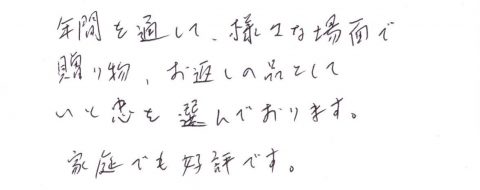 年間を通して、様々な場面で
贈り物、お返しの品として
いと忠を選んでおります。
家庭でも好評です。